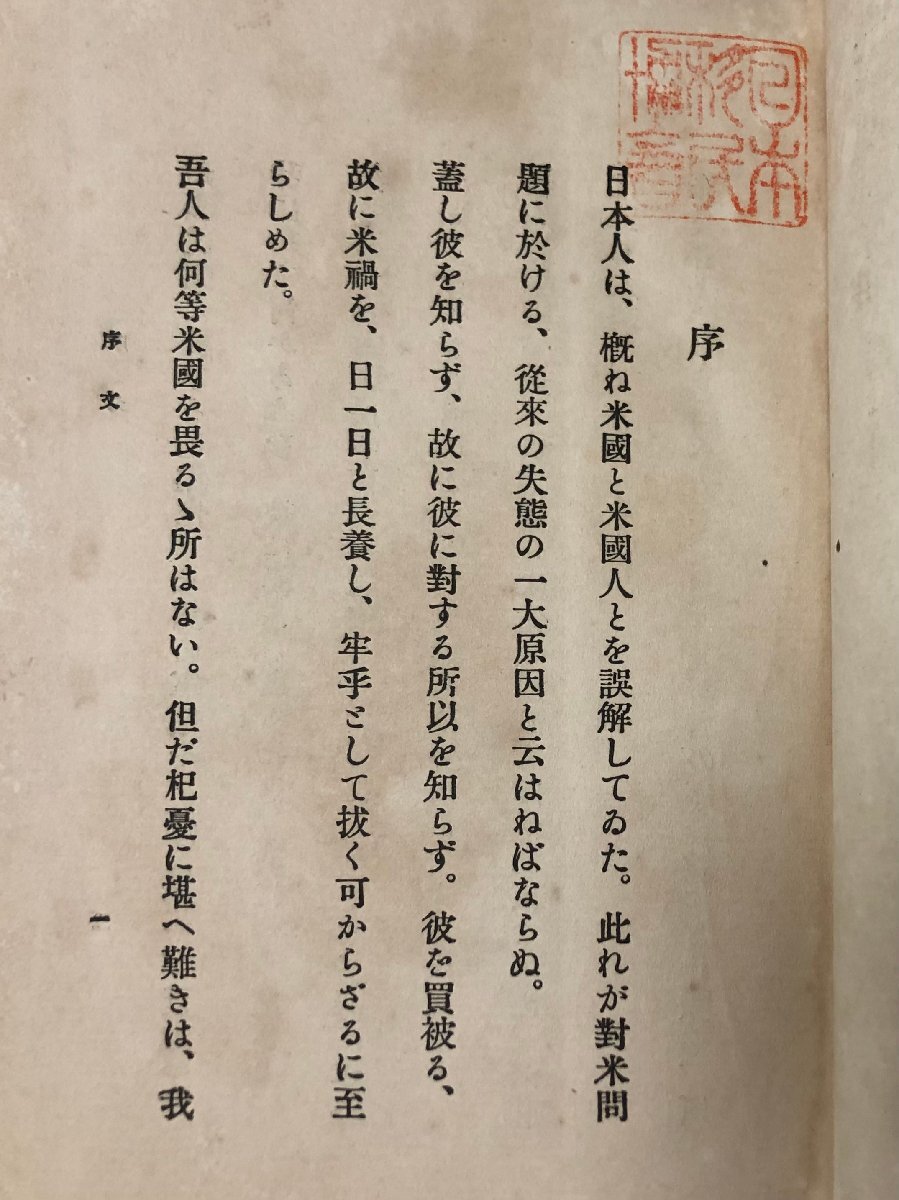 日本
移民
協會
序
日本人は、概ね米國と米國人とを誤解してゐた。此れが對米問
題に於ける、從來の失態の一大原因と云はねばならぬ。
蓋し彼を知らず、故に彼に對する所以を知らず。彼を買被る、
故に米禍を、日一日と長養し、牢乎として拔く可からざるに至
らしめた。
吾人は何等米國を畏るゝ所はない。但だ杞憂に堪へ難きは、我
序文
一